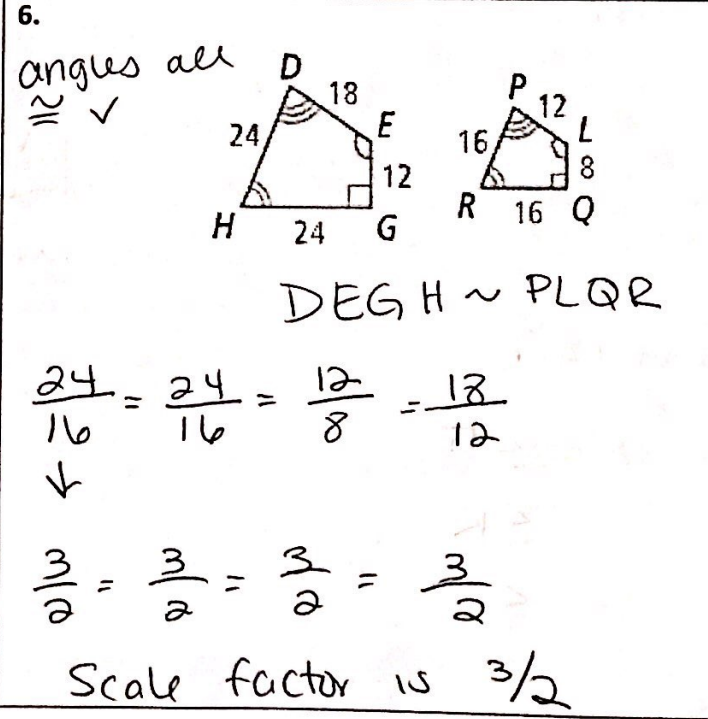 6.
angles all
≅ ✓
D
18
24
E
12
H
24
G
P
12
16
L
8
R
16
Q
DEGH ~ PLQR
24/16 = 24/16 = 12/8 = 18/12
↓
3/2 = 3/2 = 3/2 = 3/2
Scale factor is 3/2